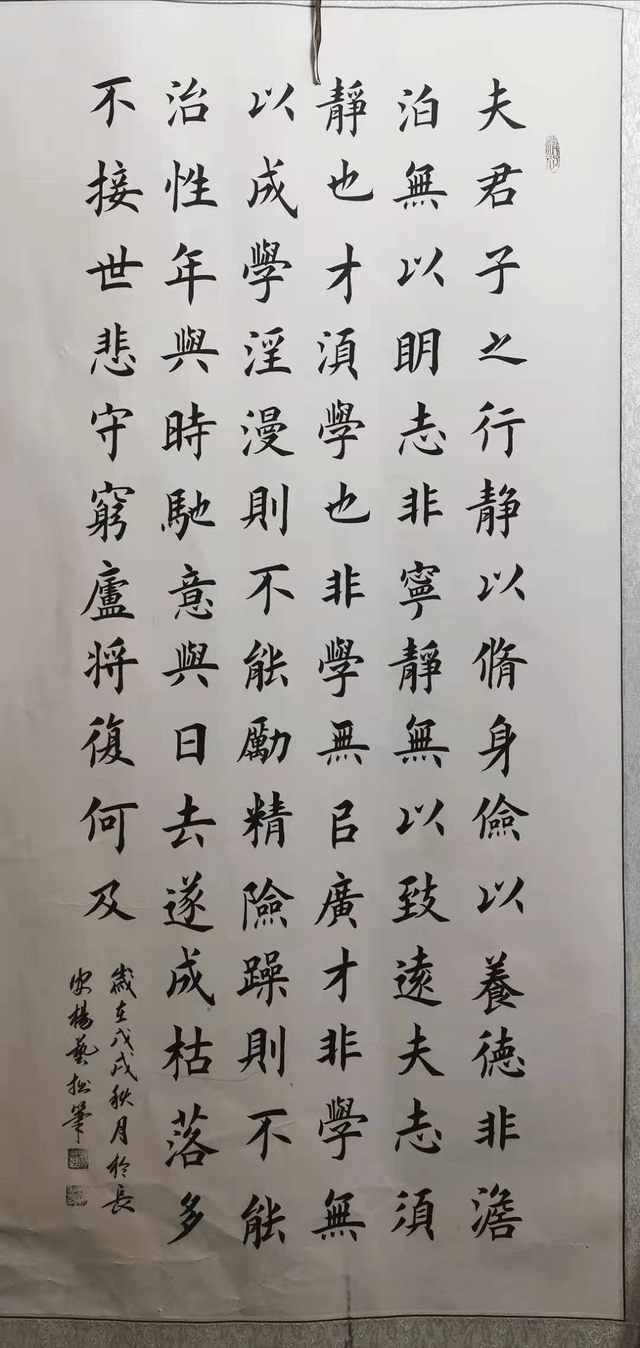 夫君子之行静以脩身儉以養德非澹
泊無以明志非寧靜無以致遠夫志須
靜也才須學也非學無㠯廣才非學無
以成學淫漫則不能勵精險躁則不能
治性年與時馳意與日去遂成枯落多
不接世悲守窮廬將復何及
歲在戊戌秋月於長
安楊藝松筆